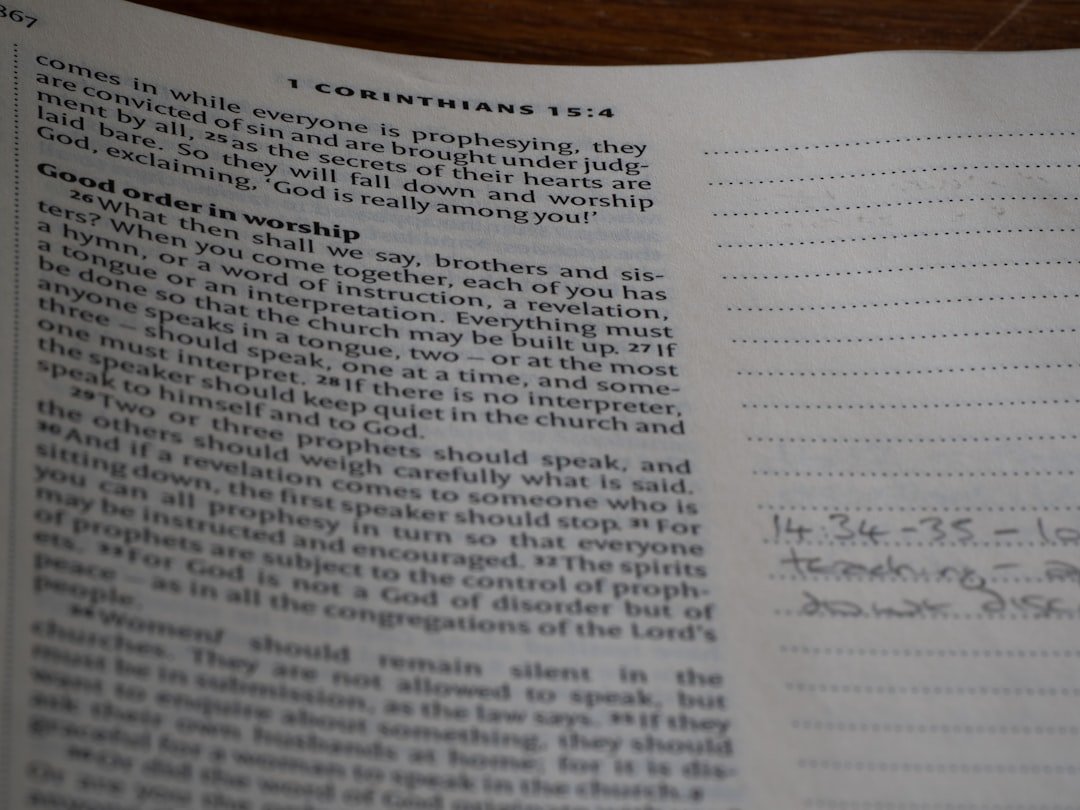 367
1 CORINTHIANS 15:4
comes in while everyone is prophesying, they
are convicted of sin and are brought under judg-
ment by all, 25 as the secrets of their hearts are
laid bare. So they will fall down and worship
God, exclaiming, ‘God is really among you!’
Good order in worship
26 What then shall we say, brothers and sis-
ters? When you come together, each of you has
a hymn, or a word of instruction, a revelation,
a tongue or an interpretation. Everything must
be done so that the church may be built up. 27 If
anyone speaks in a tongue, two – or at the most
three – should speak, one at a time, and some-
one must interpret. 28 If there is no interpreter,
the speaker should keep quiet in the church and
speak to himself and to God.
29 Two or three prophets should speak, and
the others should weigh carefully what is said.
30 And if a revelation comes to someone who is
sitting down, the first speaker should stop. 31 For
you can all prophesy in turn so that everyone
may be instructed and encouraged. 32 The spirits
of prophets are subject to the control of proph-
ets. 33 For God is not a God of disorder but of
peace – as in all the congregations of the Lord’s
people.
34 Women should remain silent in the
churches. They are not allowed to speak, but
must be in submission, as the law says. 35 If they
want to enquire about something, they should
ask their own husbands at home; for it is dis-
graceful for a woman to speak in the church.
36 Or did the word of God
14:34-35 -
teaching -